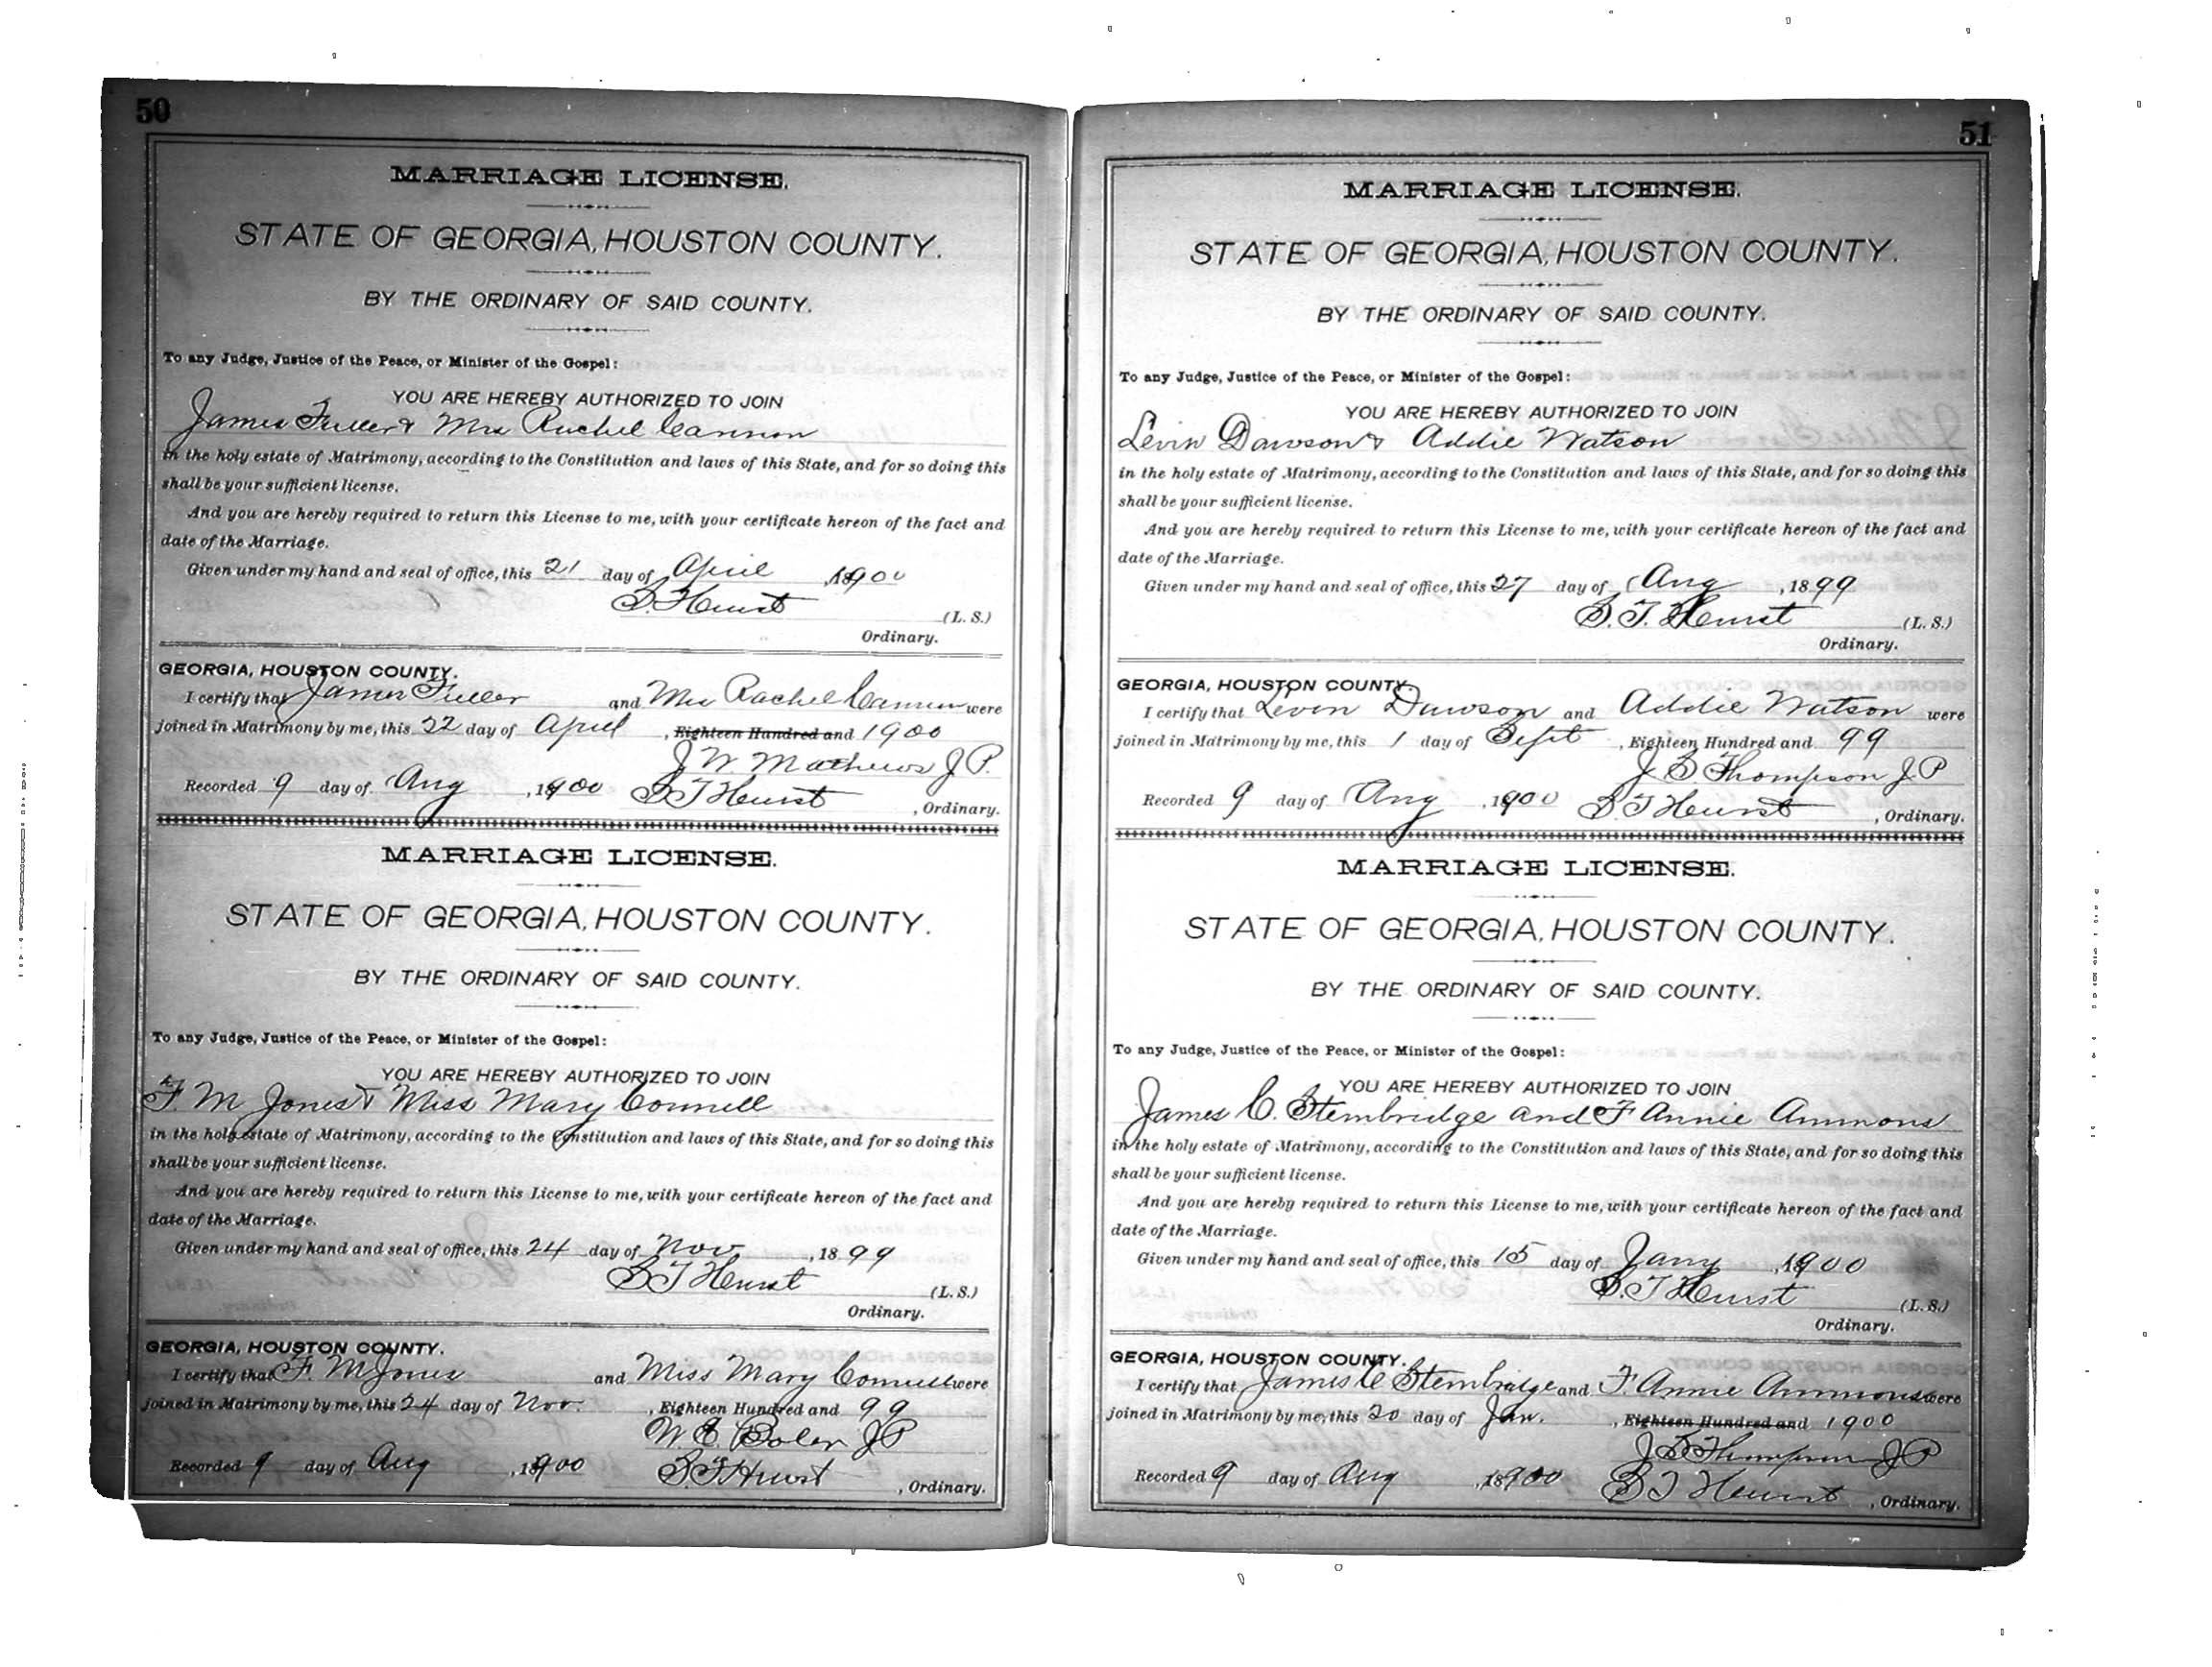 50
MARRIAGE LICENSE.
STATE OF GEORGIA, HOUSTON COUNTY.
BY THE ORDINARY OF SAID COUNTY.
To any Judge, Justice of the Peace, or Minister of the Gospel:
YOU ARE HEREBY AUTHORIZED TO JOIN
James Fuller & Mrs Rachel Cannon
in the holy estate of Matrimony, according to the Constitution and laws of this State, and for so doing this
shall be your sufficient license.
And you are hereby required to return this License to me, with your certificate hereon of the fact and
date of the Marriage.
Given under my hand and seal of office, this 21 day of April, 1900
S. T. Hurst
(L. S.)
Ordinary.
GEORGIA, HOUSTON COUNTY.
I certify that James Fuller and Mrs Rachel Cannon were
joined in Matrimony by me, this 22 day of April, Eighteen Hundred and 1900
J W. Mathews J P.
Recorded 9 day of Aug, 1900 S T Hurst, Ordinary.
MARRIAGE LICENSE.
STATE OF GEORGIA, HOUSTON COUNTY.
BY THE ORDINARY OF SAID COUNTY.
To any Judge, Justice of the Peace, or Minister of the Gospel:
YOU ARE HEREBY AUTHORIZED TO JOIN
F. M Jones & Miss Mary Connell
in the holy estate of Matrimony, according to the Constitution and laws of this State, and for so doing this
shall be your sufficient license.
And you are hereby required to return this License to me, with your certificate hereon of the fact and
date of the Marriage.
Given under my hand and seal of office, this 24 day of Nov, 1899
S T Hurst
(L. S.)
Ordinary.
GEORGIA, HOUSTON COUNTY.
I certify that F. M Jones and Miss Mary Connell were
joined in Matrimony by me, this 24 day of Nov., Eighteen Hundred and 99
W. E. Boler J P
Recorded 9 day of Aug, 1900 S T Hurst, Ordinary.
51
MARRIAGE LICENSE.
STATE OF GEORGIA, HOUSTON COUNTY.
BY THE ORDINARY OF SAID COUNTY.
To any Judge, Justice of the Peace, or Minister of the Gospel:
YOU ARE HEREBY AUTHORIZED TO JOIN
Levin Dawson & Addie Watson
in the holy estate of Matrimony, according to the Constitution and laws of this State, and for so doing this
shall be your sufficient license.
And you are hereby required to return this License to me, with your certificate hereon of the fact and
date of the Marriage.
Given under my hand and seal of office, this 27 day of Aug, 1899
S. T. Hurst
(L. S.)
Ordinary.
GEORGIA, HOUSTON COUNTY.
I certify that Levin Dawson and Addie Watson were
joined in Matrimony by me, this 1 day of Sept, Eighteen Hundred and 99
J S Thompson J P
Recorded 9 day of Aug, 1900 S T Hurst, Ordinary.
MARRIAGE LICENSE.
STATE OF GEORGIA, HOUSTON COUNTY.
BY THE ORDINARY OF SAID COUNTY.
To any Judge, Justice of the Peace, or Minister of the Gospel:
YOU ARE HEREBY AUTHORIZED TO JOIN
James C. Stembridge and F Annie Ammons
in the holy estate of Matrimony, according to the Constitution and laws of this State, and for so doing this
shall be your sufficient license.
And you are hereby required to return this License to me, with your certificate hereon of the fact and
date of the Marriage.
Given under my hand and seal of office, this 15 day of Jany, 1900
S. T Hurst
(L. S.)
Ordinary.
GEORGIA, HOUSTON COUNTY.
I certify that James C Stembridge and F. Annie Ammons were
joined in Matrimony by me, this 20 day of Jan., Eighteen Hundred and 1900
J S Thompson J P
Recorded 9 day of Aug, 1900 S T Hurst, Ordinary.